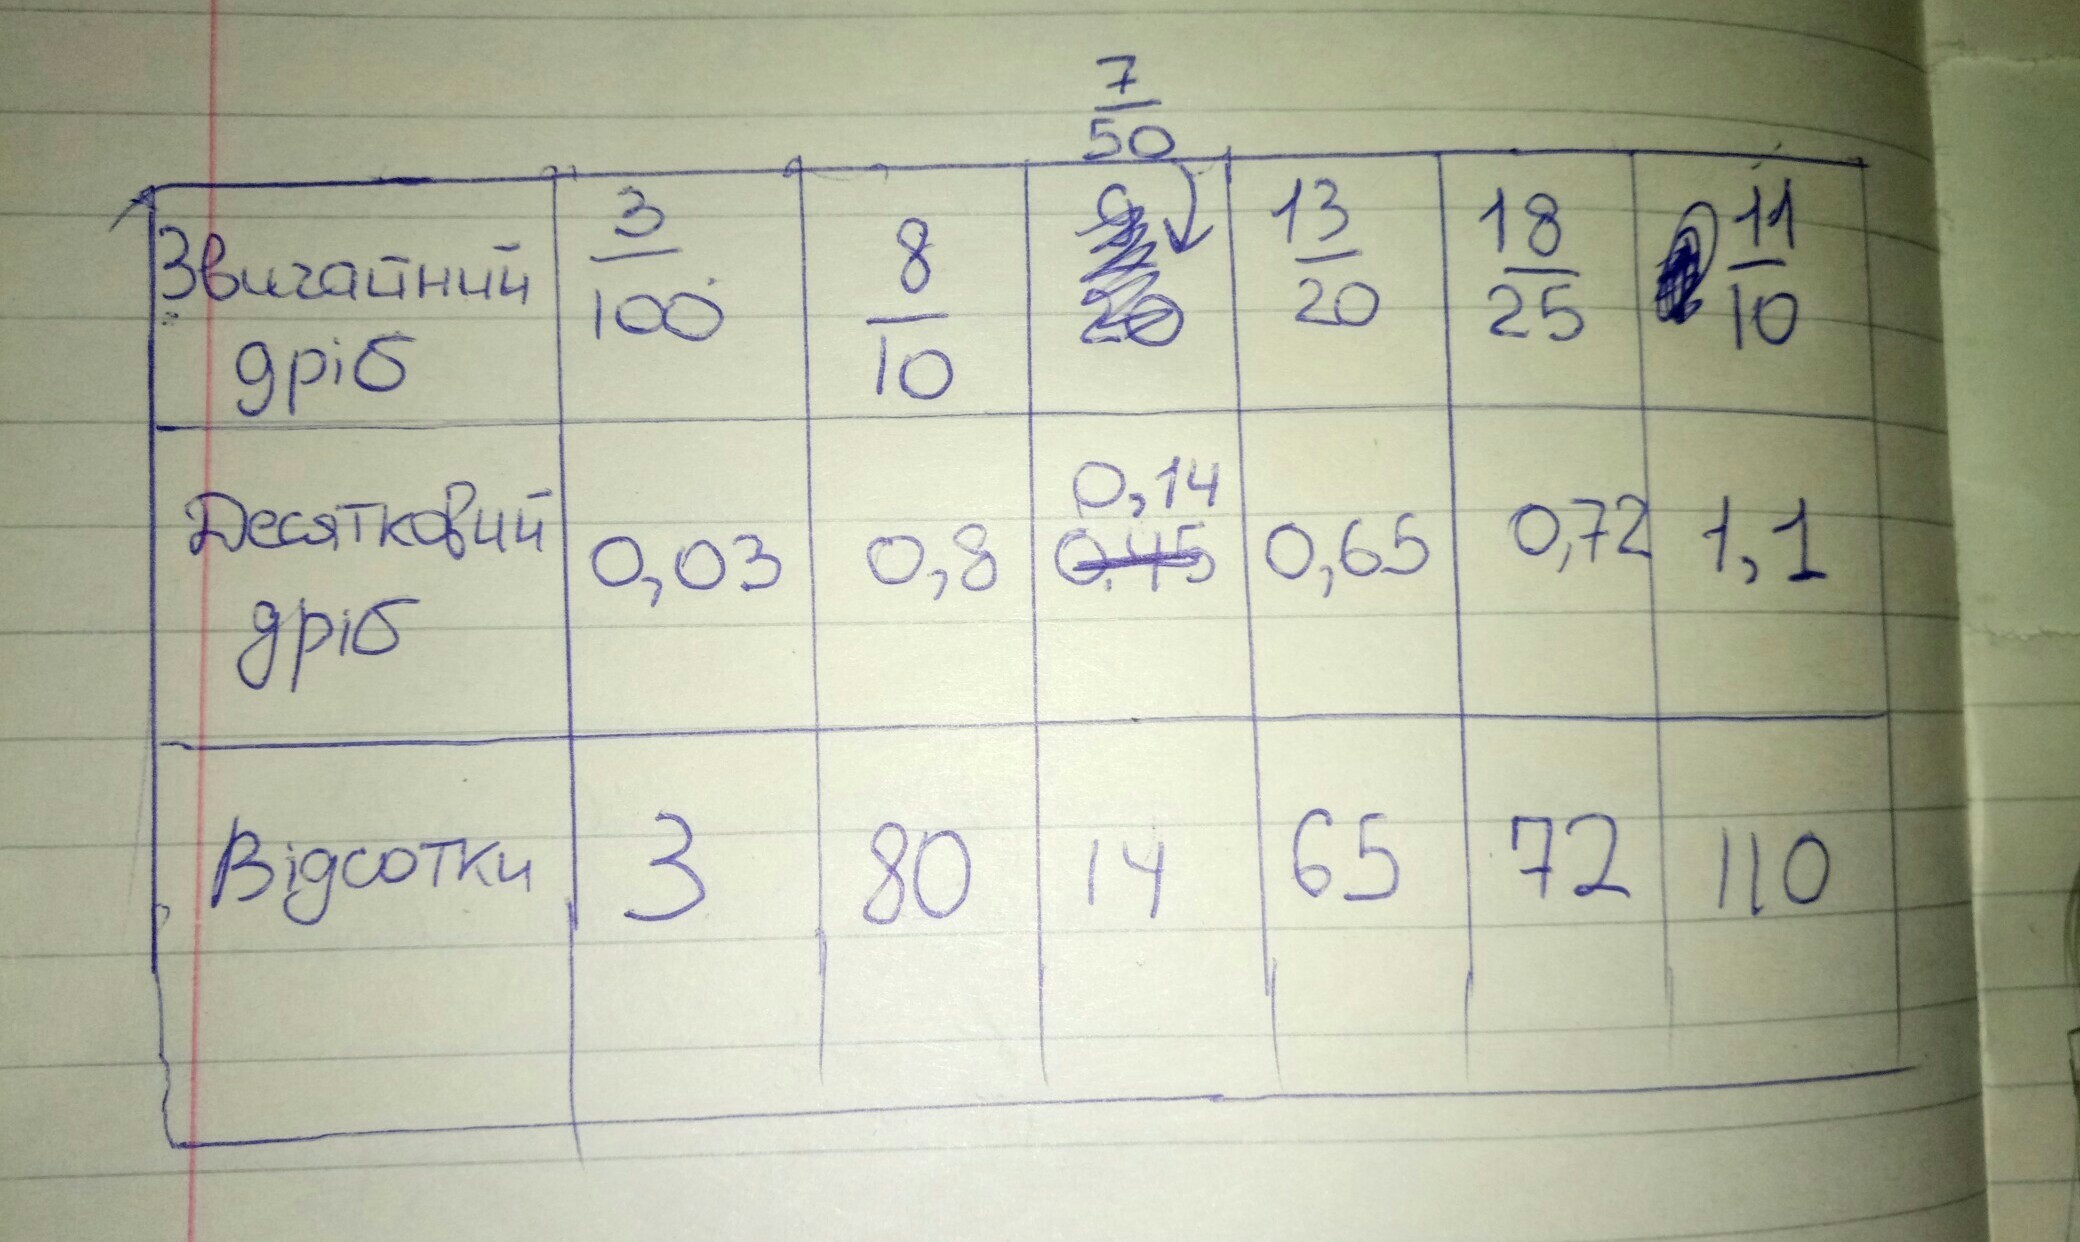 7/50
Звичайний дріб 3/100 8/10 13/20 18/25 11/10
Десятковий дріб 0,03 0,8 0,14 0,45 0,65 0,72 1,1
Відсотки 3 80 14 65 72 110